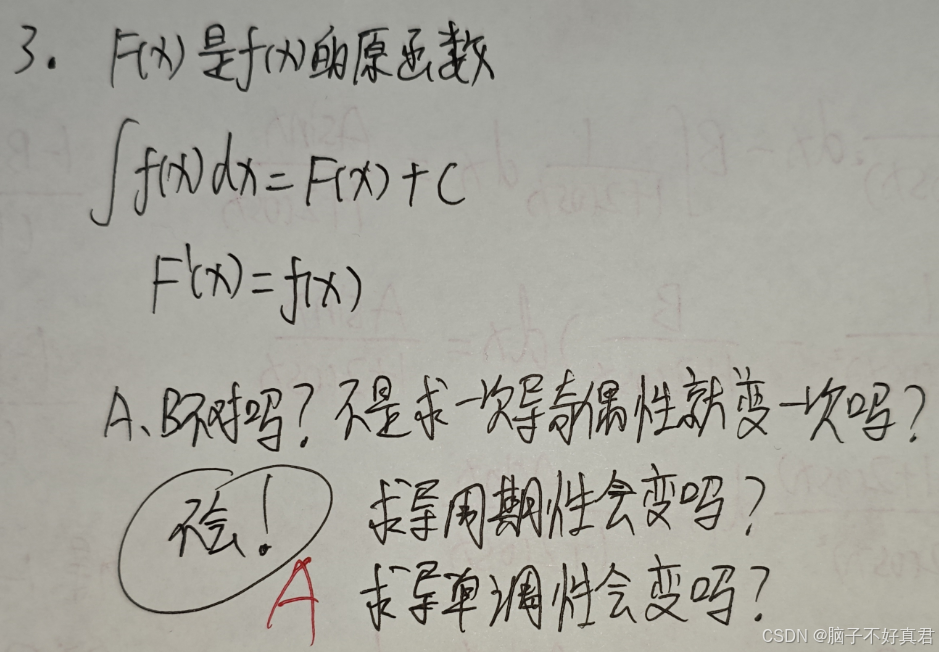 3. F(x)是f(x)的原函数
∫f(x)dx=F(x)+C
F'(x)=f(x)
A、B不对吗?不是求一次导奇偶性就变一次吗?
不会!
求导周期性会变吗?
A
求导单调性会变吗?
CSDN @脑子不好真君